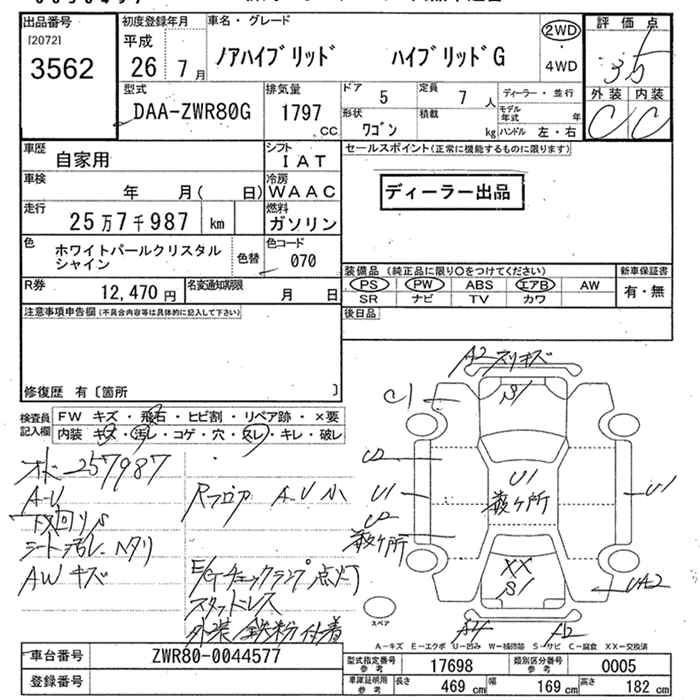 出品番号
[2072]
3562
初度登録年月
平成
26 年 7 月
車名・グレード
ノアハイブリッド ハイブリッドG
2WD
・
4WD
評価点
3.5
外装 内装
C C
型式
DAA-ZWR80G
排気量
1797 CC
ドア 5
定員 7 人
形状 ワゴン
積載 kg
ディーラー・並行
モデル年式 年
ハンドル 左・右
車歴 自家用
シフト IAT
車検 年 月( 日)
冷房 WAAC
走行 25万7千987 km
燃料 ガソリン
色 ホワイトパールクリスタル
シャイン
色替
色コード 070
R券 12,470 円
名変通知期限 月 日
セールスポイント(正常に機能するものに限ります)
ディーラー出品
装備品 (純正品に限り○をつけてください)
PS PW ABS エアB AW
SR ナビ TV カワ
新車保証書
有・無
後日品
注意事項申告欄(不具合内容等は具体的に記入して下さい)
修復歴 有〔箇所 〕
検査員
記入欄
FW キズ・飛石・ヒビ割・リペア跡・×要
内装 キズ・汚レ・コゲ・穴・スレ・キレ・破レ
オド257987
A-U
下廻りS
シート汚レ、ヘタリ
AW キズ
Rフロア A-U小
E/Gチェックランプ点灯
スタットレス
外装 鉄粉付着
A2 スリキズ
S1
C1
U2
U1
U2
数ヶ所
U1
数ヶ所
U1
XX
S1
UA2
A4
A2
スペア
A-キズ E-エクボ U-凹み W-補修跡 S-サビ C-腐食 XX-交換済
車台番号 ZWR80-0044577
登録番号
型式指定番号
参考
17698
類別区分番号
参考
0005
車庫証明用
参考
長さ 469 cm
幅 169 cm
高さ 182 cm